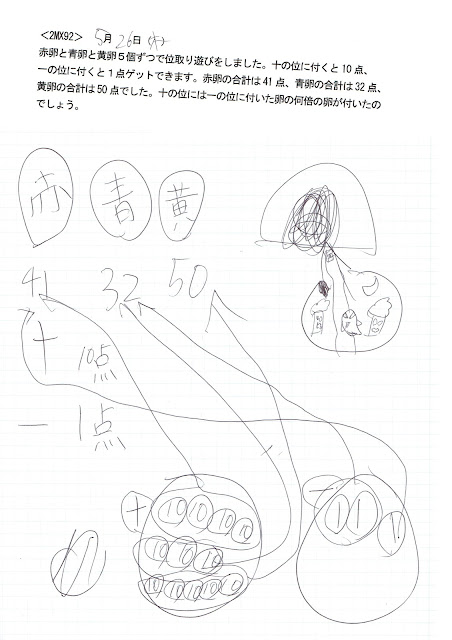 <2MX92> 5月26日(木)
赤卵と青卵と黄卵5個ずつで位取り遊びをしました。十の位に付くと10点、
一の位に付くと1点ゲットできます。赤卵の合計は41点、青卵の合計は32点、
黄卵の合計は50点でした。十の位には一の位に付いた卵の何倍の卵が付いたの
でしょう。
赤 青 黄
41 32 50
十 10点
一 1点
十 10 10 10 10
10 10 10
10 10 10 10 10
一 1 1 1